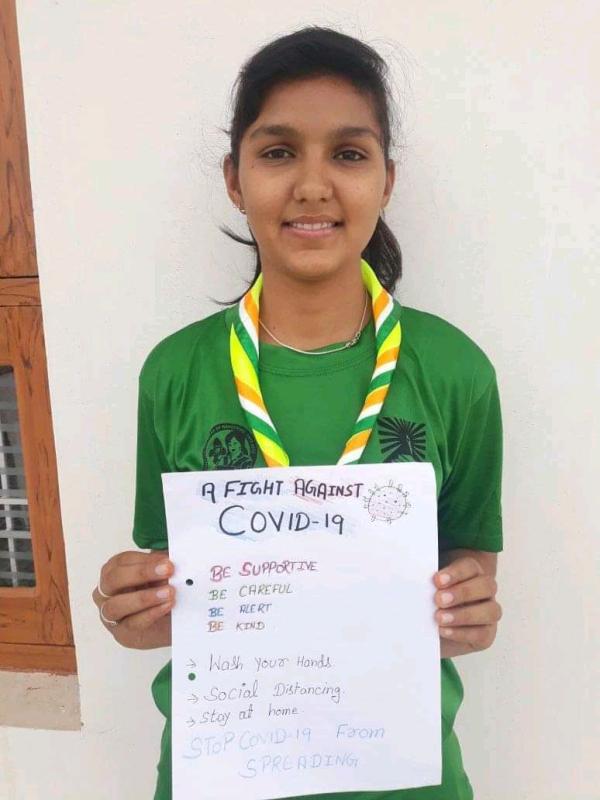 A FIGHT AGAINST
COVID-19
BE SUPPORTIVE
BE CAREFUL
BE ALERT
BE KIND
→ Wash your Hands.
→ Social Distancing.
→ Stay at home.
STOP COVID-19 From
SPREADING